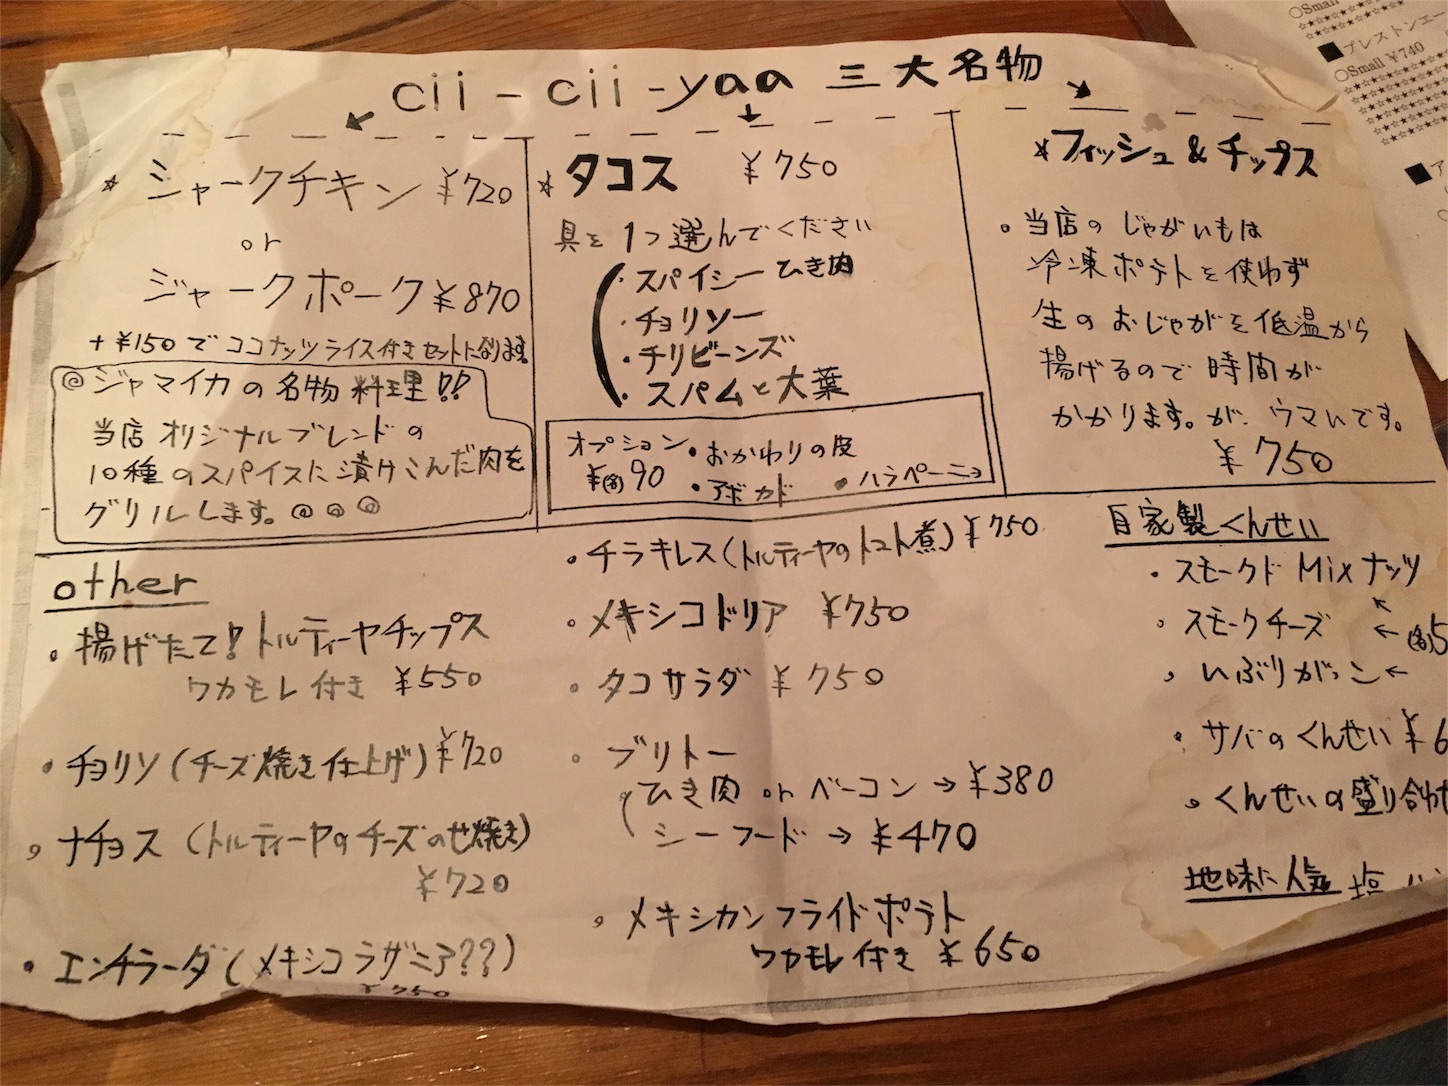 cii-cii-yaa 三大名物
☆ ジャークチキン ¥720
or
ジャークポーク ¥870
+¥150で ココナッツライス付きセットになります。
◎ ジャマイカの名物料理!!
当店オリジナルブレンドの
10種のスパイスに漬けこんだ肉を
グリルします。◎◎◎
☆ タコス ¥750
具を1つ選んでください
・スパイシーひき肉
・チョリソー
・チリビーンズ
・スパムと大葉
オプション ・おかわりの皮
¥(各)90 ・アボカド ・ハラペーニョ
☆フィッシュ&チップス
・当店のじゃがいもは
冷凍ポテトを使わず
生のおじゃがを低温から
揚げるので時間が
かかります。が、ウマいです。
¥750
other
・揚げたて!トルティーヤチップス
ワカモレ付き ¥550
・チョリソ(チーズ焼き仕上げ) ¥720
・ナチョス(トルティーヤのチーズのせ焼き)
¥720
・エンチラーダ(メキシコラザニア??)
¥750
・チラキレス(トルティーヤのトマト煮) ¥750
・メキシコドリア ¥750
・タコサラダ ¥750
・ブリトー
ひき肉 or ベーコン → ¥380
シーフード → ¥470
・メキシカンフライドポテト
ワカモレ付き ¥650
自家製くんせい
・スモークド Mixナッツ
・スモークチーズ ← (各)5
・いぶりがっこ ←
・サバのくんせい ¥6
・くんせいの盛り合わせ
地味に人気 塩
○Small
■プレストンエー
○Small ¥740
■ア